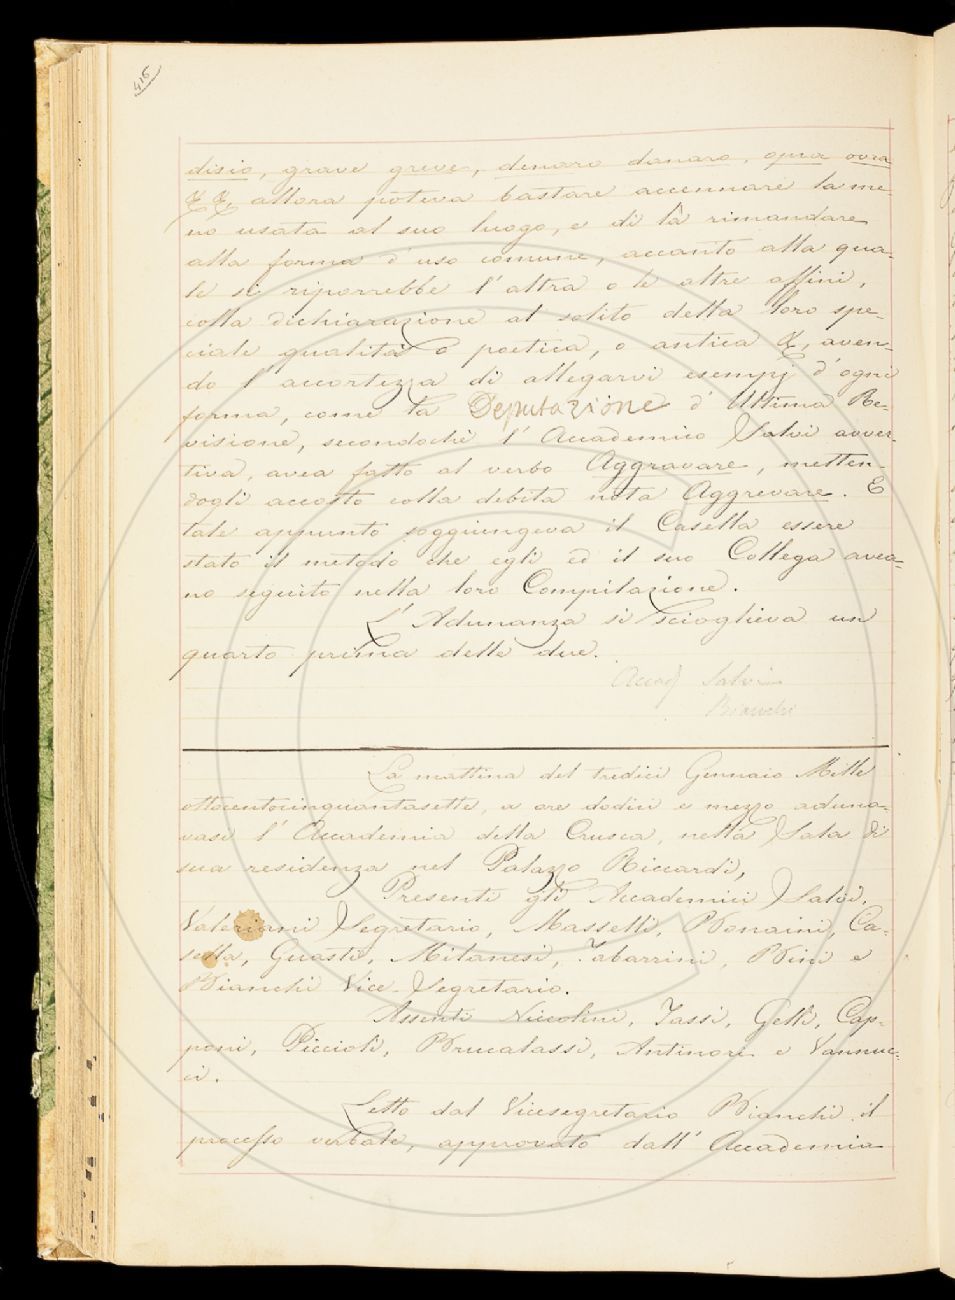 416
disio, grave greve, denaro danaro, opra ovra
&. &., allora poteva bastare accennare la me-
no usata al suo luogo, e di là rimandare
alla forma d'uso comune, accanto alla qua-
le si riporrebbe l'altra o le altre affini,
colla dichiarazione al solito della loro spe-
ciale qualità o poetica, o antica &, aven-
do l'accortezza di allegarvi esempj d'ogni
forma, come la Deputazione d'Ultima Re-
visione, secondochè l'Accademico Salvi avver-
tiva, avea fatto al verbo Aggravare, metten-
dogli accosto colla debita nota Aggrevare. E
tale appunto soggiungeva il Casella essere
stato il metodo che egli ed il suo Collega avea-
no seguito nella loro Compilazione.
L'Adunanza si scioglieva un
quarto prima delle due.
Salvi
Bianchi
La mattina del tredici Gennaio Mille
ottocentocinquantasette, a ore dodici e mezzo aduna-
vasi l'Accademia della Crusca, nella Sala di
sua residenza nel Palazzo Riccardi,
Presenti gli Accademici Salvi,
Valeriani Segretario, Masselli, Bonaini, Ca-
sella, Guasti, Milanesi, Tabarrini, Bini e
Bianchi Vice-Segretario.
Assenti Niccolini, Tassi, Gelli, Cap-
poni, Piccioli, Brucalassi, Antinori e Vannuc-
ci.
Letto dal Vicesegretario Bianchi il
processo verbale, approvato dall'Accademia